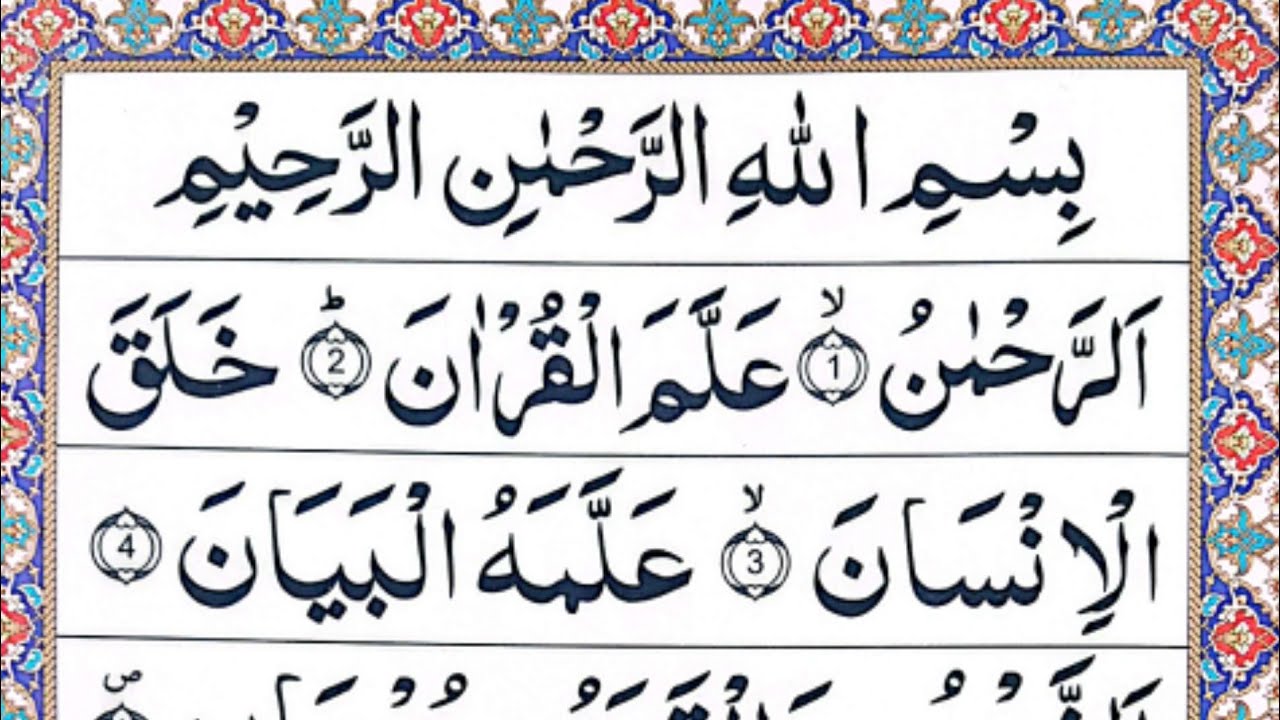 بِسْمِ اللهِ الرَّحْمٰنِ الرَّحِيْمِ
اَلرَّحْمٰنُ ۙ 1 عَلَّمَ الْقُرْاٰنَ ؕ 2 خَلَقَ
الْاِنْسَانَ ۙ 3 عَلَّمَهُ الْبَيَانَ 4